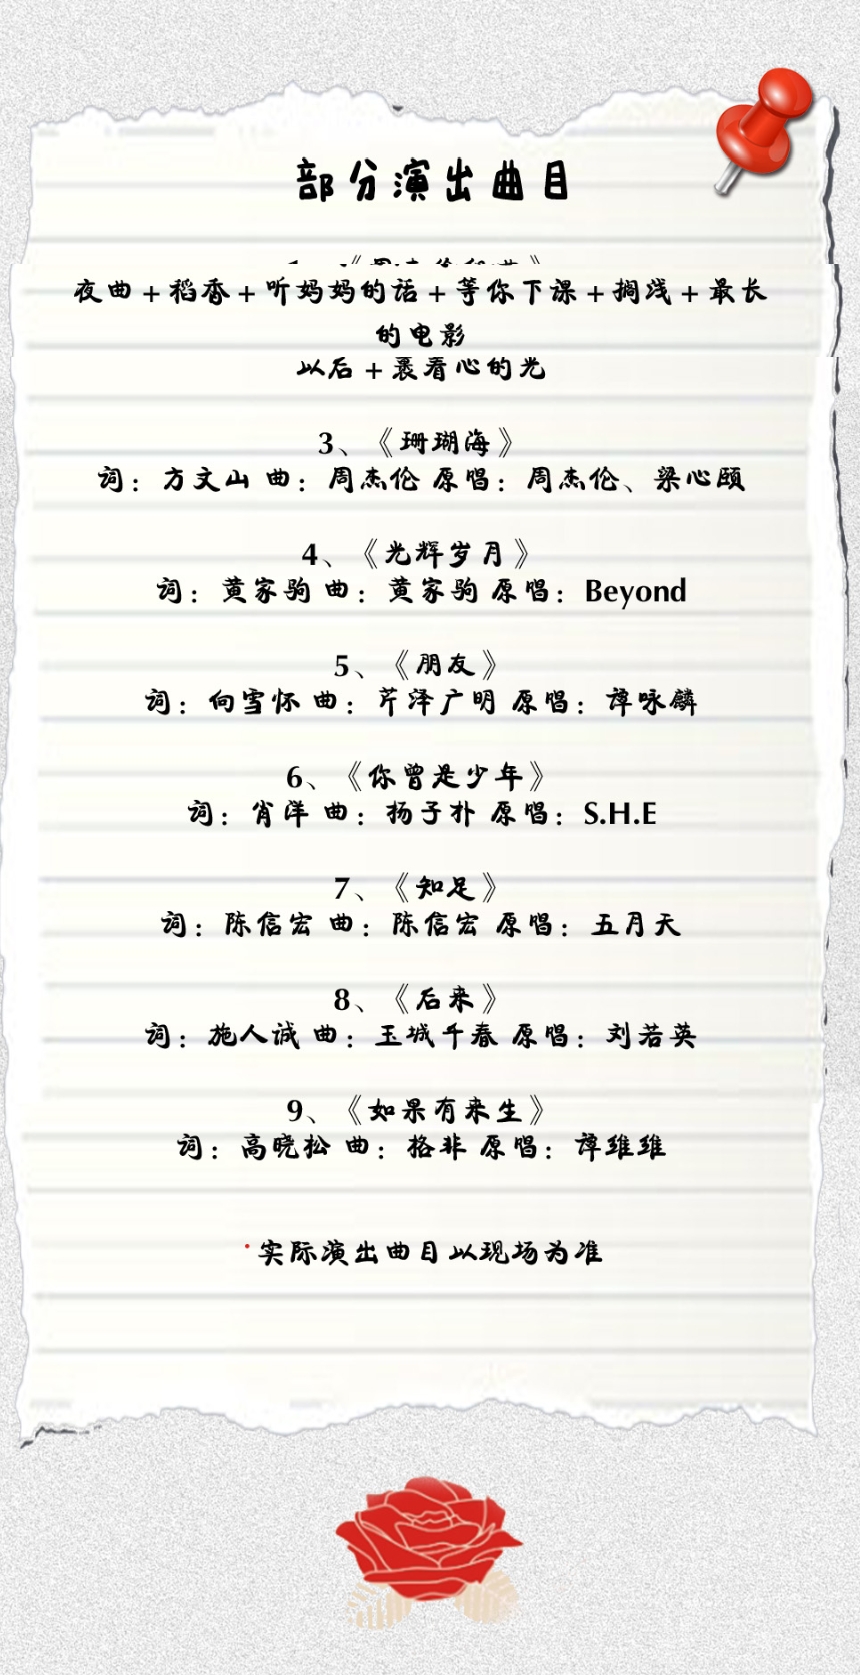 部分演出曲目
夜曲 + 稻香 + 听妈妈的话 + 等你下课 + 搁浅 + 最长
的电影
以后 + 裹着心的光
3、《珊瑚海》
词：方文山 曲：周杰伦 原唱：周杰伦、梁心颐
4、《光辉岁月》
词：黄家驹 曲：黄家驹 原唱：Beyond
5、《朋友》
词：向雪怀 曲：芹泽广明 原唱：谭咏麟
6、《你曾是少年》
词：肖洋 曲：杨子朴 原唱：S.H.E
7、《知足》
词：陈信宏 曲：陈信宏 原唱：五月天
8、《后来》
词：施人诚 曲：玉城千春 原唱：刘若英
9、《如果有来生》
词：高晓松 曲：格非 原唱：谭维维
实际演出曲目以现场为准